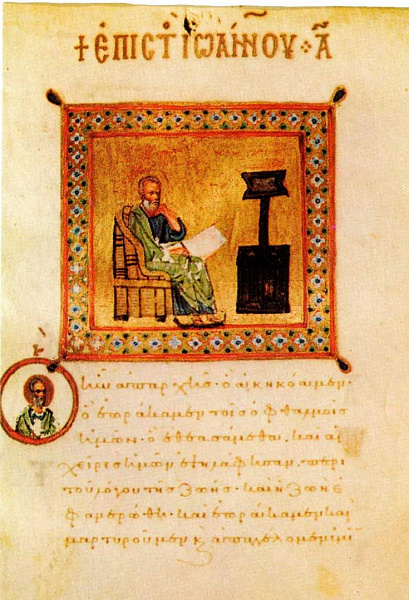 + ἘΠΙΣΤ ἸΩΆΝΝΟΥ · Α
ἦν ἀπ' ἀρχῆς · ὃ ἀκηκόαμεν ·
ὃ ἑωράκαμεν τοῖς ὀφθαλμοῖς
ἡμῶν · ὃ ἐθεασάμεθα · καὶ αἱ
χεῖρες ἡμῶν ἐψηλάφησαν · περὶ
τοῦ λόγου τῆς ζωῆς · καὶ ἡ ζωὴ ἐ
φανερώθη · καὶ ἑωράκαμεν καὶ
μαρτυροῦμεν κ ἀπαγγέλομεν ὑμῖν